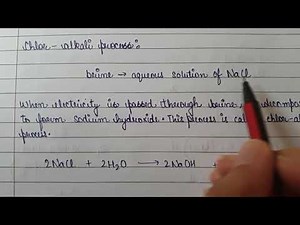 Chlor-alkali process:
brine → aqueous solution of NaCl
When electricity is passed through brine, decompos
To form sodium hydroxide. This process is chlor-al
process.
2NaCl + 2H₂O → 2NaOH +